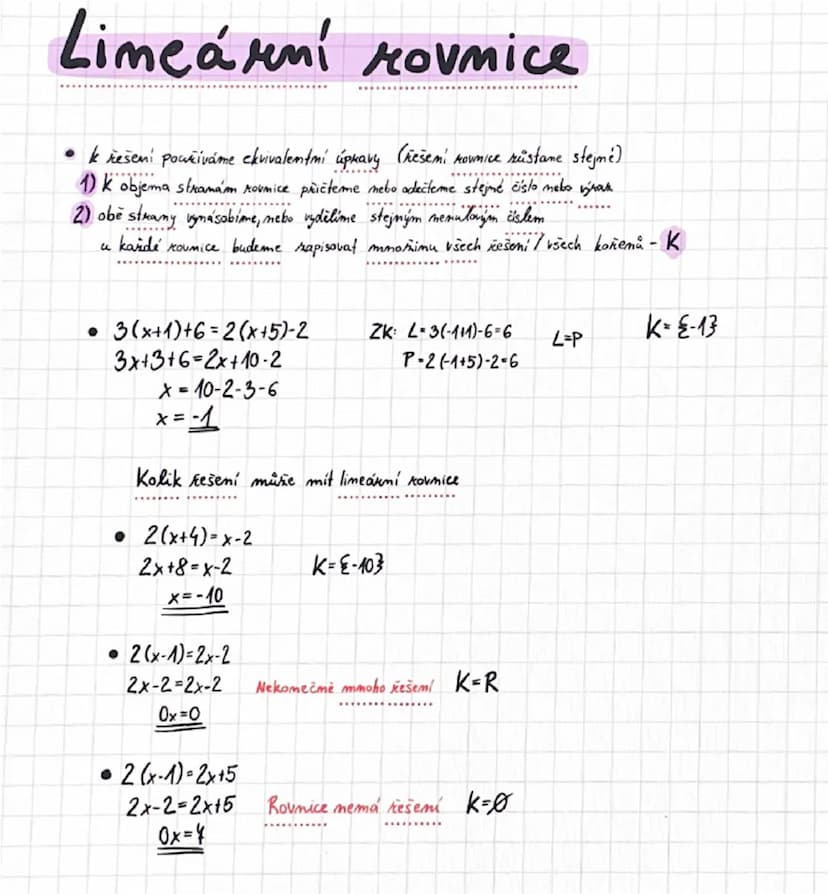 Lineární rovnice
• k řešení používáme ekvivalentní úpravy (řešení rovnice zůstane stejné)
1) k objema stranám rovnice přičteme nebo odečteme stejné číslo nebo výraz
2) obě strany vynásobíme, nebo vydělíme stejným nenulovým číslem
u každé rovnice budeme zapisovat množinu všech řešení / všech kořenů - K
• 3(x+1)+6=2(x+5)-2 ZK: L=3(-1+1)-6=6 L=P K={-1}
3x+3+6=2x+10-2 P=2(-1+5)-2=6
x = 10-2-3-6
x = -1
Kolik řešení může mít lineární rovnice
• 2(x+4)=x-2
2x+8=x-2 K={-10}
x=-10
• 2(x-1)=2x-2
2x-2=2x-2 Nekonečně mnoho řešení K=R
0x=0
• 2(x-1)=2x+5
2x-2=2x+5 Rovnice nemá řešení K=∅
0x=7